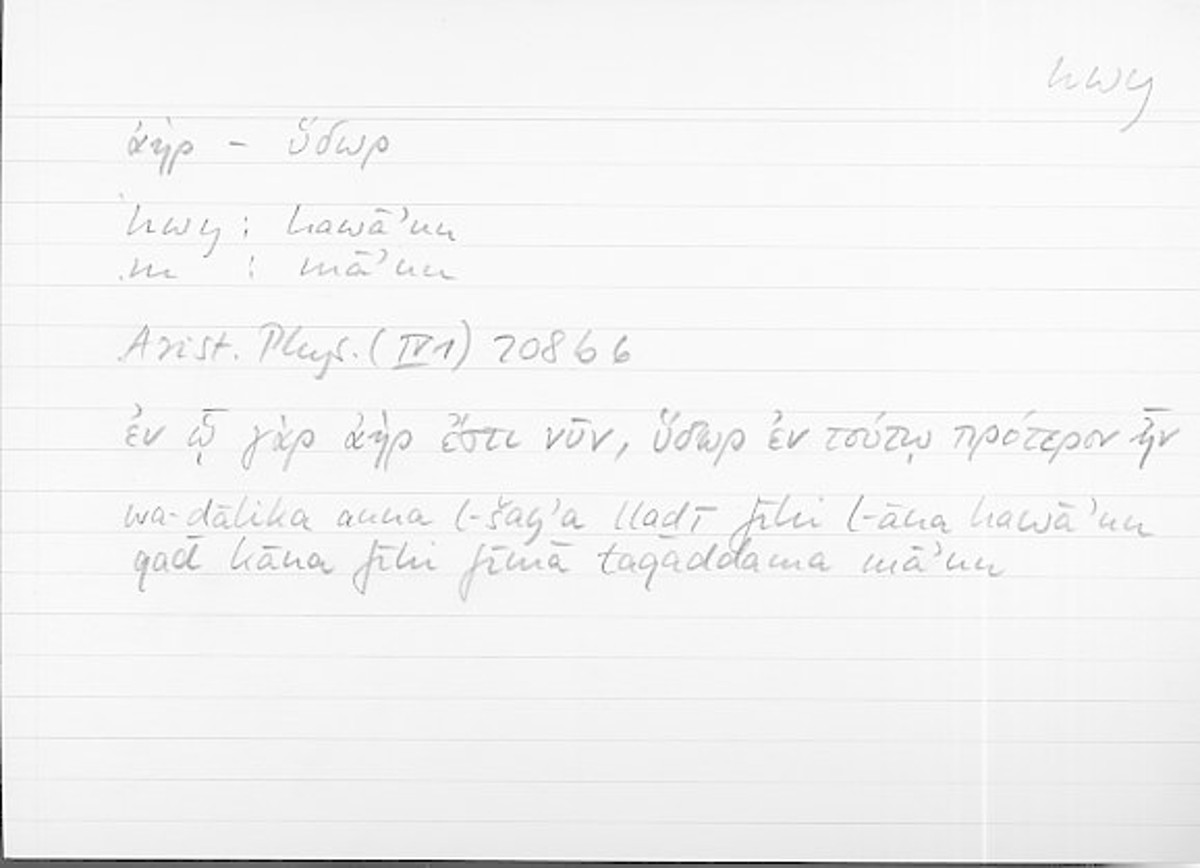 hwy
ἀήρ - ὕδωρ
hwy : hawā'un
m : mā'un
Arist. Phys. (IV 1) 208 b 6
ἐν ᾧ γὰρ ἀὴρ ἔστι νῦν, ὕδωρ ἐν τούτῳ πρότερον ἦν
wa-ḏālika anna l-šay'a llaḏī fīhi l-āna hawā'un
qad kāna fīhi fīmā taqaddama mā'un